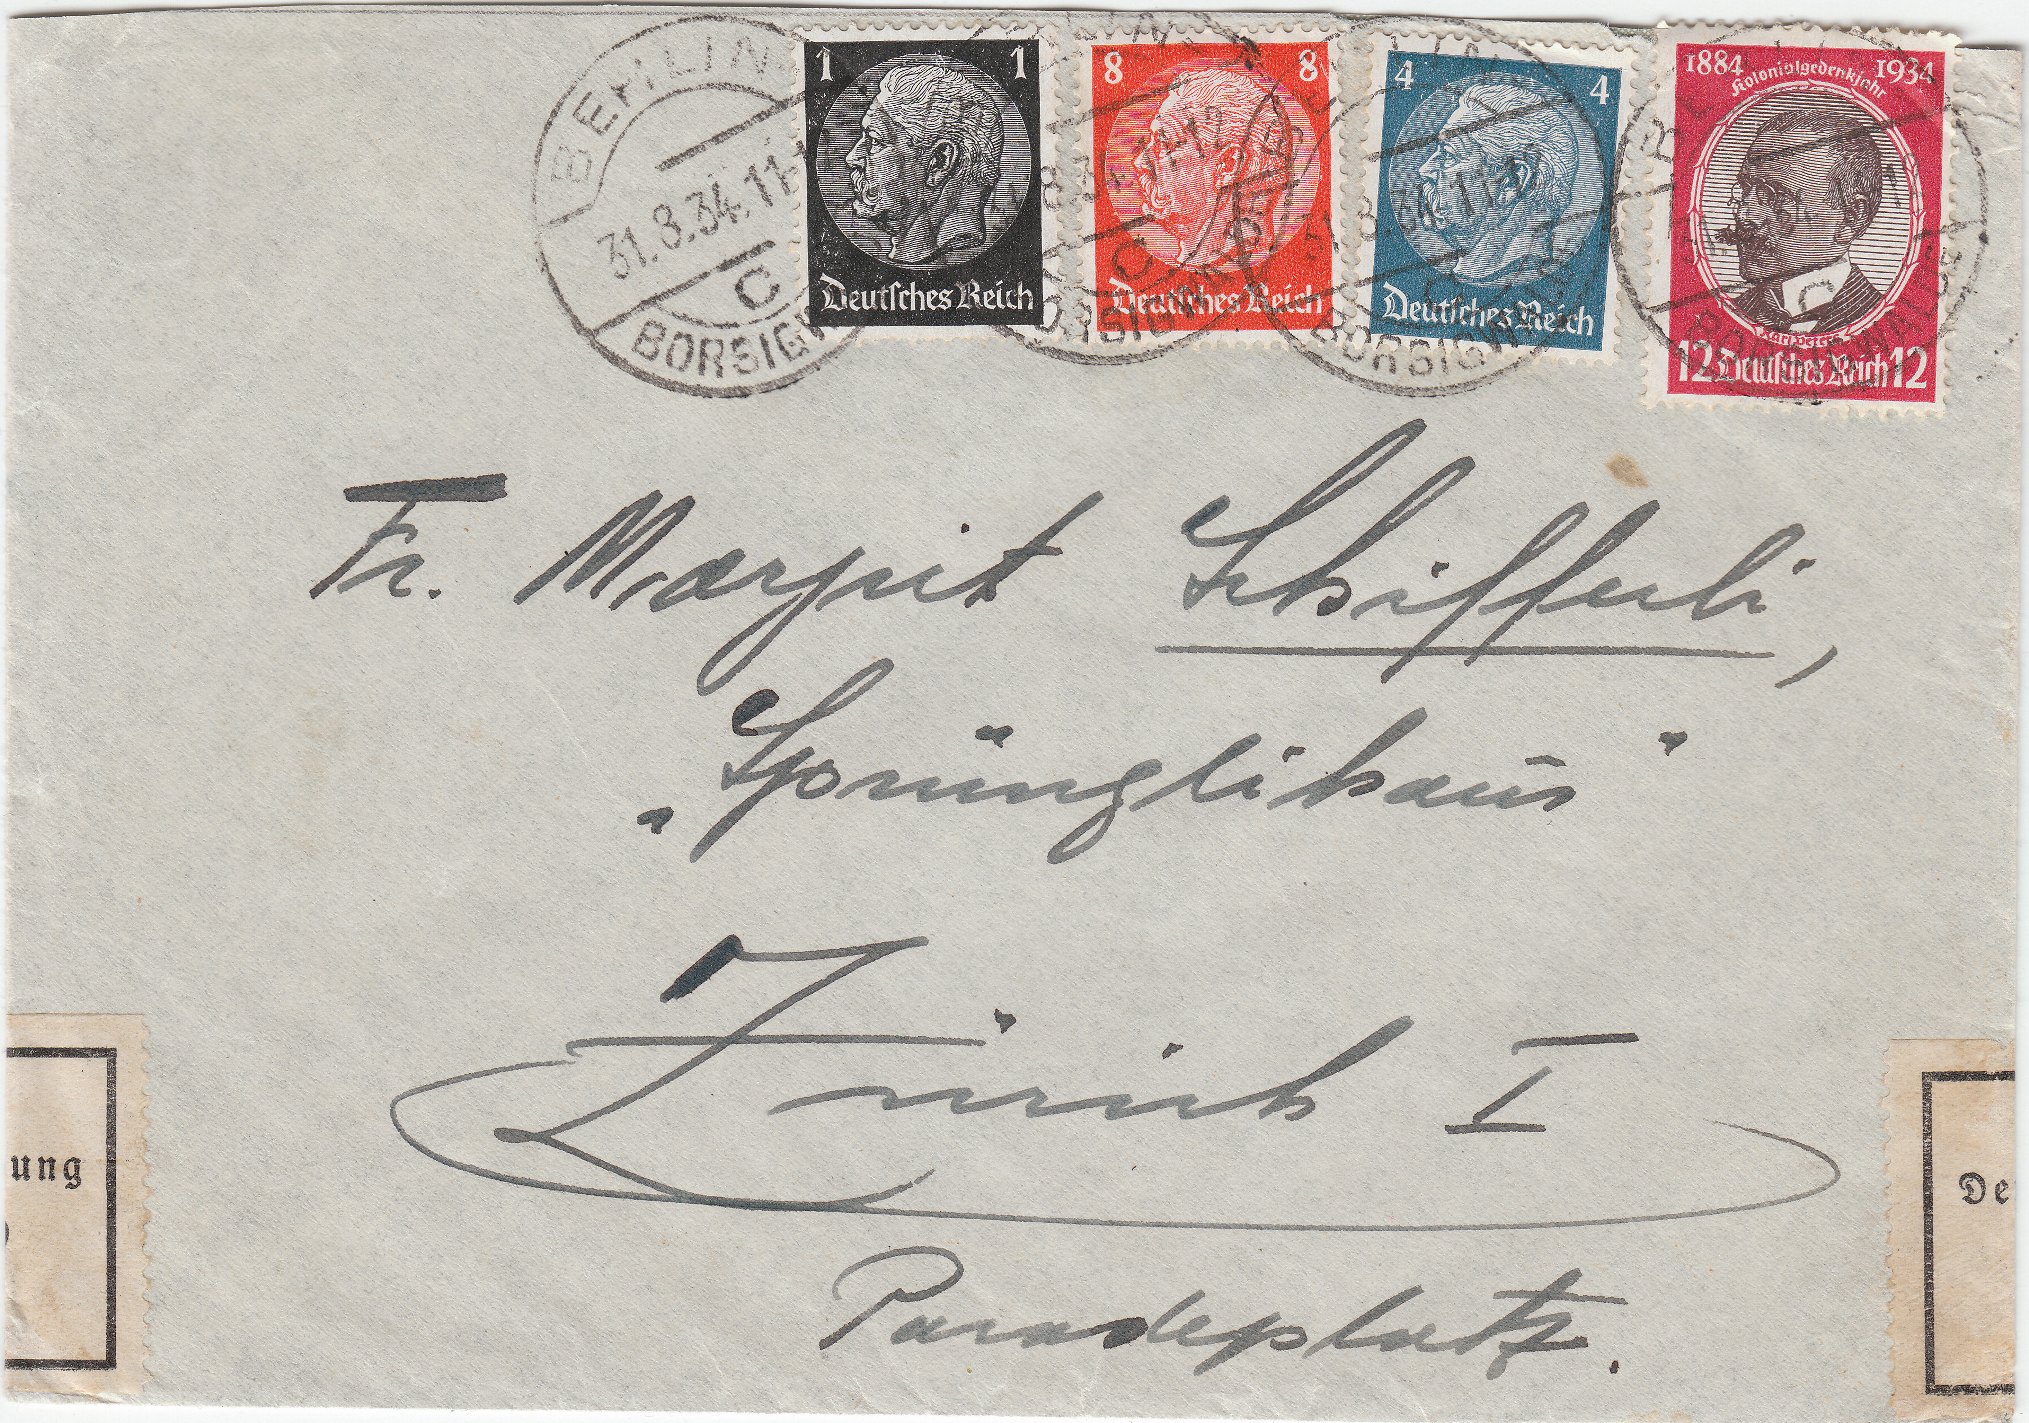 BERLIN
31.8.34.11-12
C
BORSIGWALDE
1 1
Deutsches Reich
8 8
Deutsches Reich
4 4
Deutsches Reich
1884 1934
Kolonialgedenkjahr
Karl Peters
12 Deutsches Reich 12
Fr. Margrit Schifferli,
„Sprünglihaus"
Zürich I
Paradeplatz.
ung
De